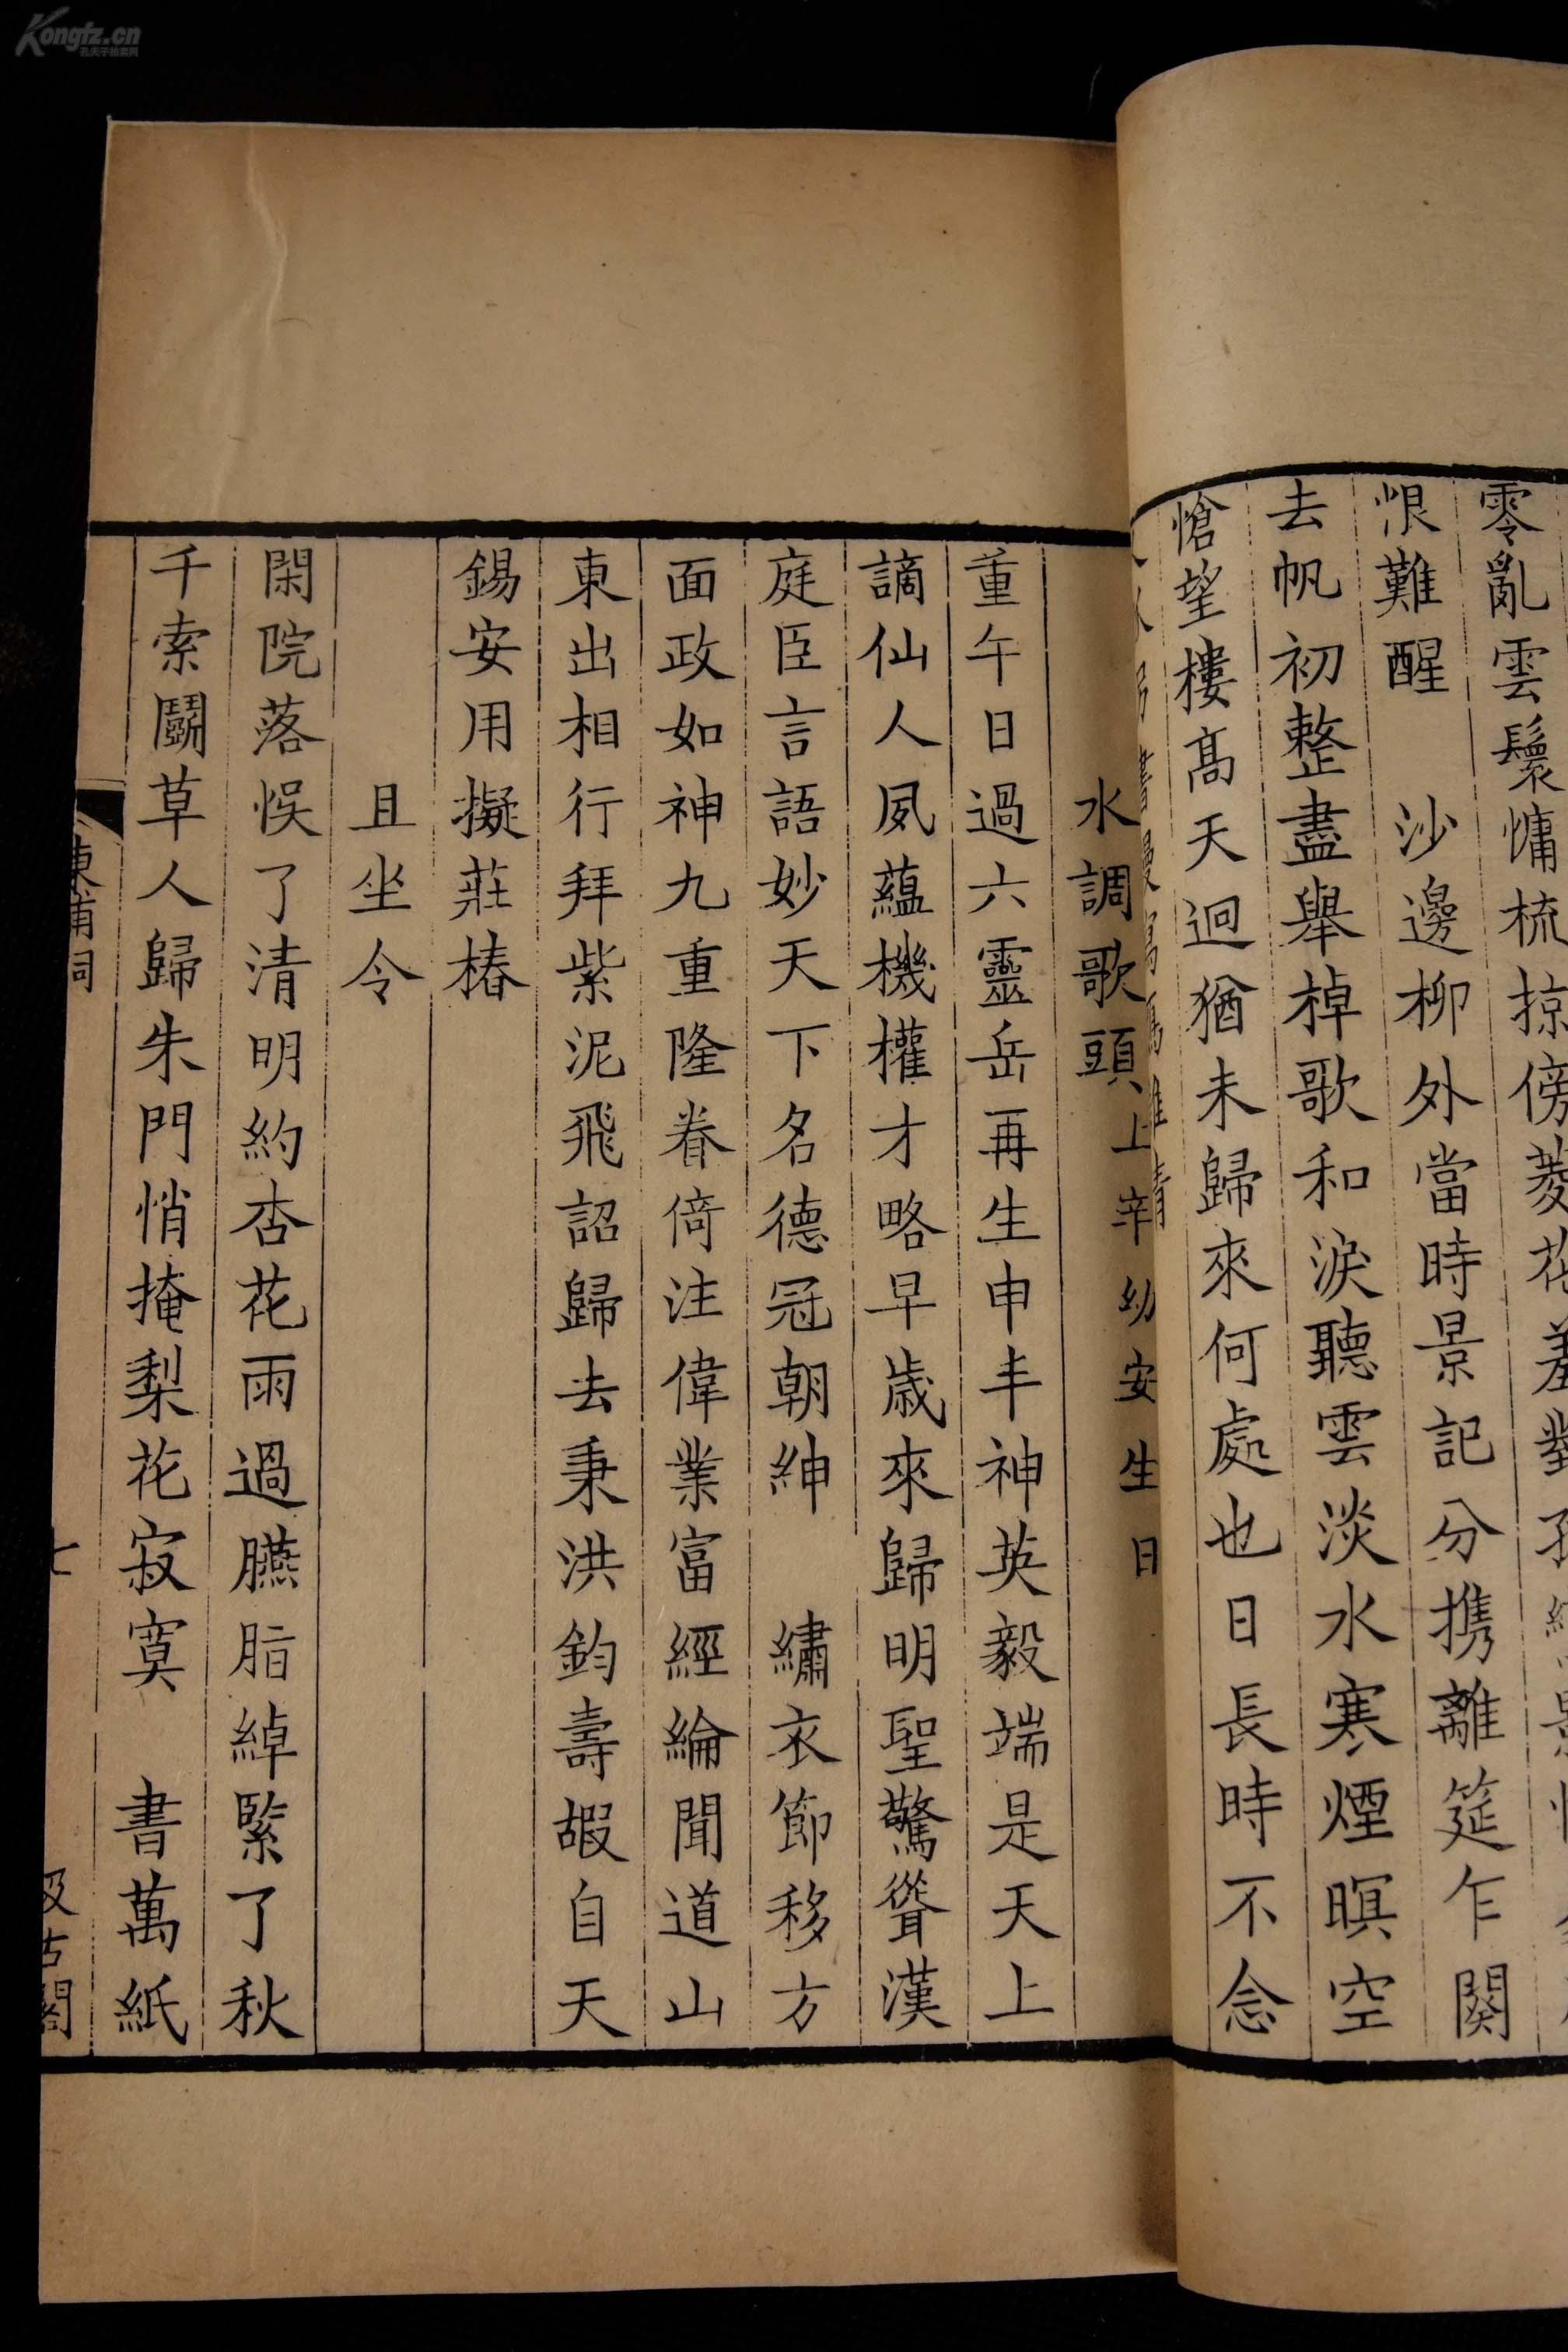 零亂雲鬟慵梳掠傍菱花羞對孤
恨難醒　沙邊柳外當時景記分攜離筵乍闋
去帆初整盡舉棹歌和淚聽雲淡水寒煙暝空
愴望樓高天迥猶未歸來何處也日長時不念
水調歌頭上辛幼安生日
重午日過六靈岳再生申丰神英毅端是天上
謫仙人夙蘊機權才略早歲來歸明聖驚聳漢
庭臣言語妙天下名德冠朝紳　繡衣節移方
面政如神九重隆眷倚注偉業富經綸聞道山
東出相行拜紫泥飛詔歸去秉洪鈞壽嘏自天
錫安用擬莊椿
且坐令
閑院落悞了清明約杏花雨過臙脂綽緊了秋
千索鬭草人歸朱門悄掩梨花寂寞　書萬紙
東浦詞
七
汲古閣
Kongfz.cn
孔夫子拍卖网